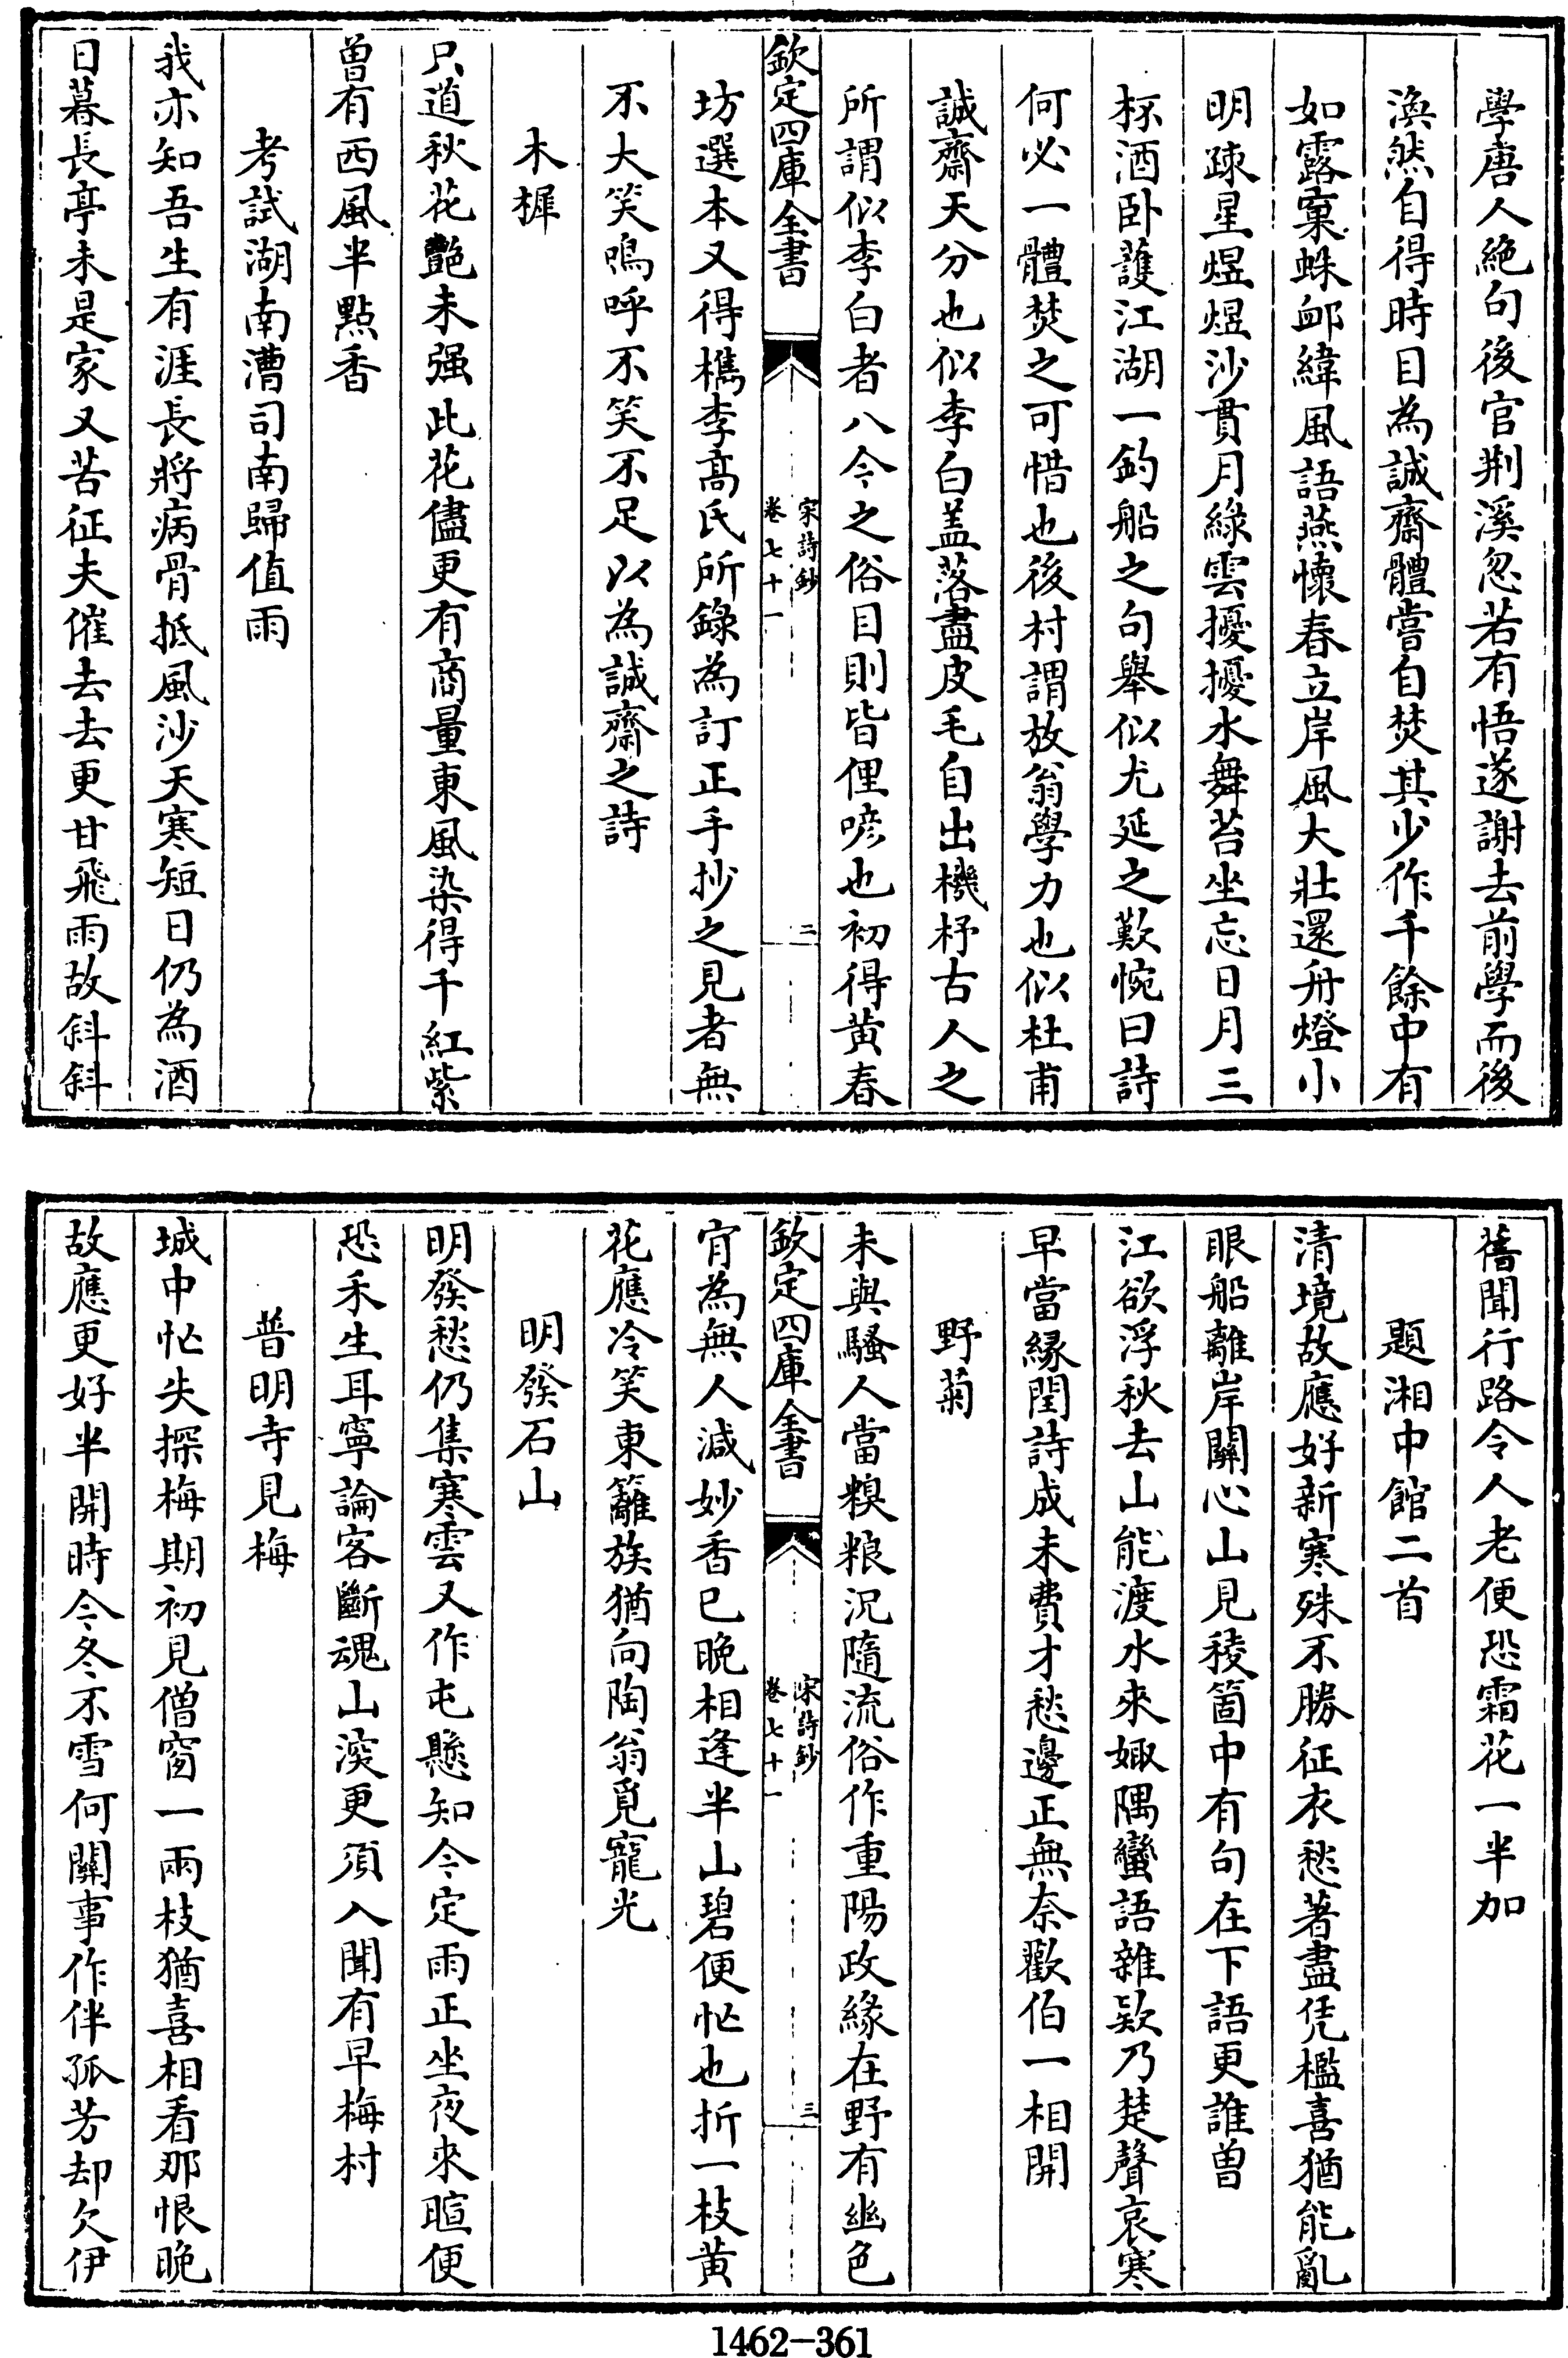 學唐人絶句後官荆溪忽若有悟遂謝去前學而後
渙然自得時目為誠齋體嘗自焚其少作千餘中有
如露窠蛛䘏緯風語燕懷春立岸風大壯還舟燈小
明疎星煜煜沙貫月緑雲擾擾水舞苔坐忘日月三
杯酒卧䕶江湖一釣船之句舉似尤延之歎惋曰詩
何必一體焚之可惜也後村謂放翁學力也似杜甫
誠齋天分也似李白盖落盡皮毛自出機杼古人之
所謂似李白者八今之俗目則皆俚諺也初得黄春
欽定四庫全書
宋詩鈔
卷七十一
二
坊選本又得檇李高氏所錄為訂正手抄之見者無
不大笑嗚呼不笑不足以為誠齋之詩
木樨
只道秋花艶未强此花儘更有商量東風染得千紅紫
曾有西風半點香
考試湖南漕司南歸值雨
我亦知吾生有涯長將病骨抵風沙天寒短日仍為酒
日暮長亭未是家又苦征夫催去去更甘飛雨故斜斜
舊聞行路令人老便恐霜花一半加
題湘中館二首
清境故應好新寒殊不勝征衣愁著盡凭檻喜猶能亂
眼船離岸闗心山見稜箇中有句在下語更誰曽
江欲浮秋去山能渡水來娵隅蠻語雜欵乃楚聲哀寒
早當緣閏詩成未費才愁邊正無奈歡伯一相開
野菊
未與騷人當糗粮況隨流俗作重陽政緣在野有幽色
欽定四庫全書
宋詩鈔
卷七十一
三
肯為無人減妙香已晚相逢半山碧便忙也折一枝黄
花應冷笑東籬族猶向陶翁覓寵光
明發石山
明發愁仍集寒雲又作屯懸知今定雨正坐夜來暄便
恐禾生耳寧論客斷魂山深更須入聞有早梅村
普明寺見梅
城中忙失探梅期初見僧窗一兩枝猶喜相看那恨晚
故應更好半開時今冬不雪何關事作伴孤芳却欠伊
1462-361